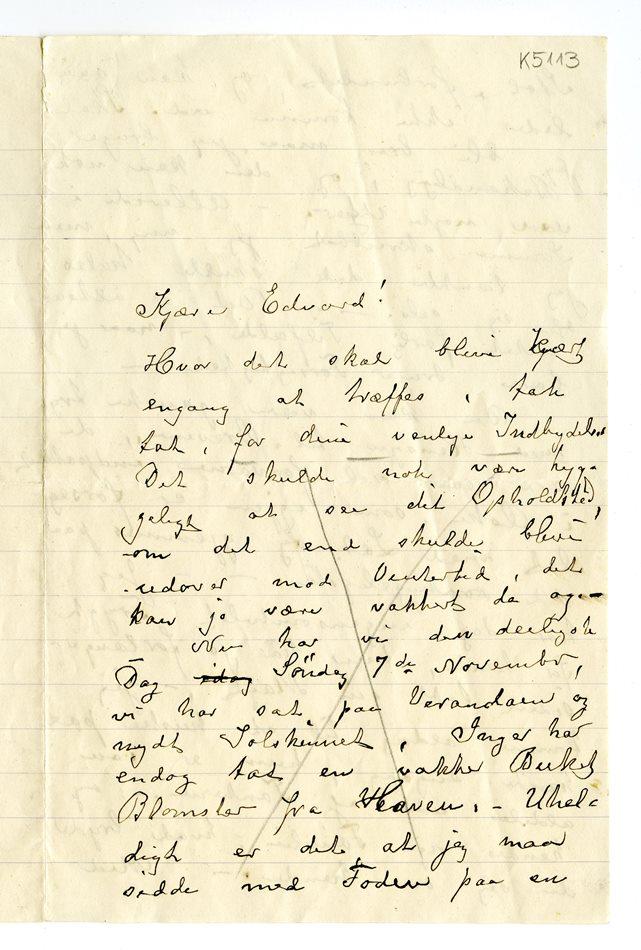 K5113
Kjære Edvard!
Hvor det skal blive kjært
engang at træffes, tak
tak, for dine venlige Indbydelser
Det skulde nok være hyg-
geligt at see dit Opholdsted,
om det end skulde blive
udover mod Vintertid, det
kan jo være vakkert da og -
Nu har vi den deiligste
Dag idag Söndag 7de November,
vi har sat paa Verandaen og
nydt Solskinnet, Inger har
endog tat en vakker Buket
Blomster fra Haven. - Uhel-
digt er det at jeg maa
sidde med Foden paa en